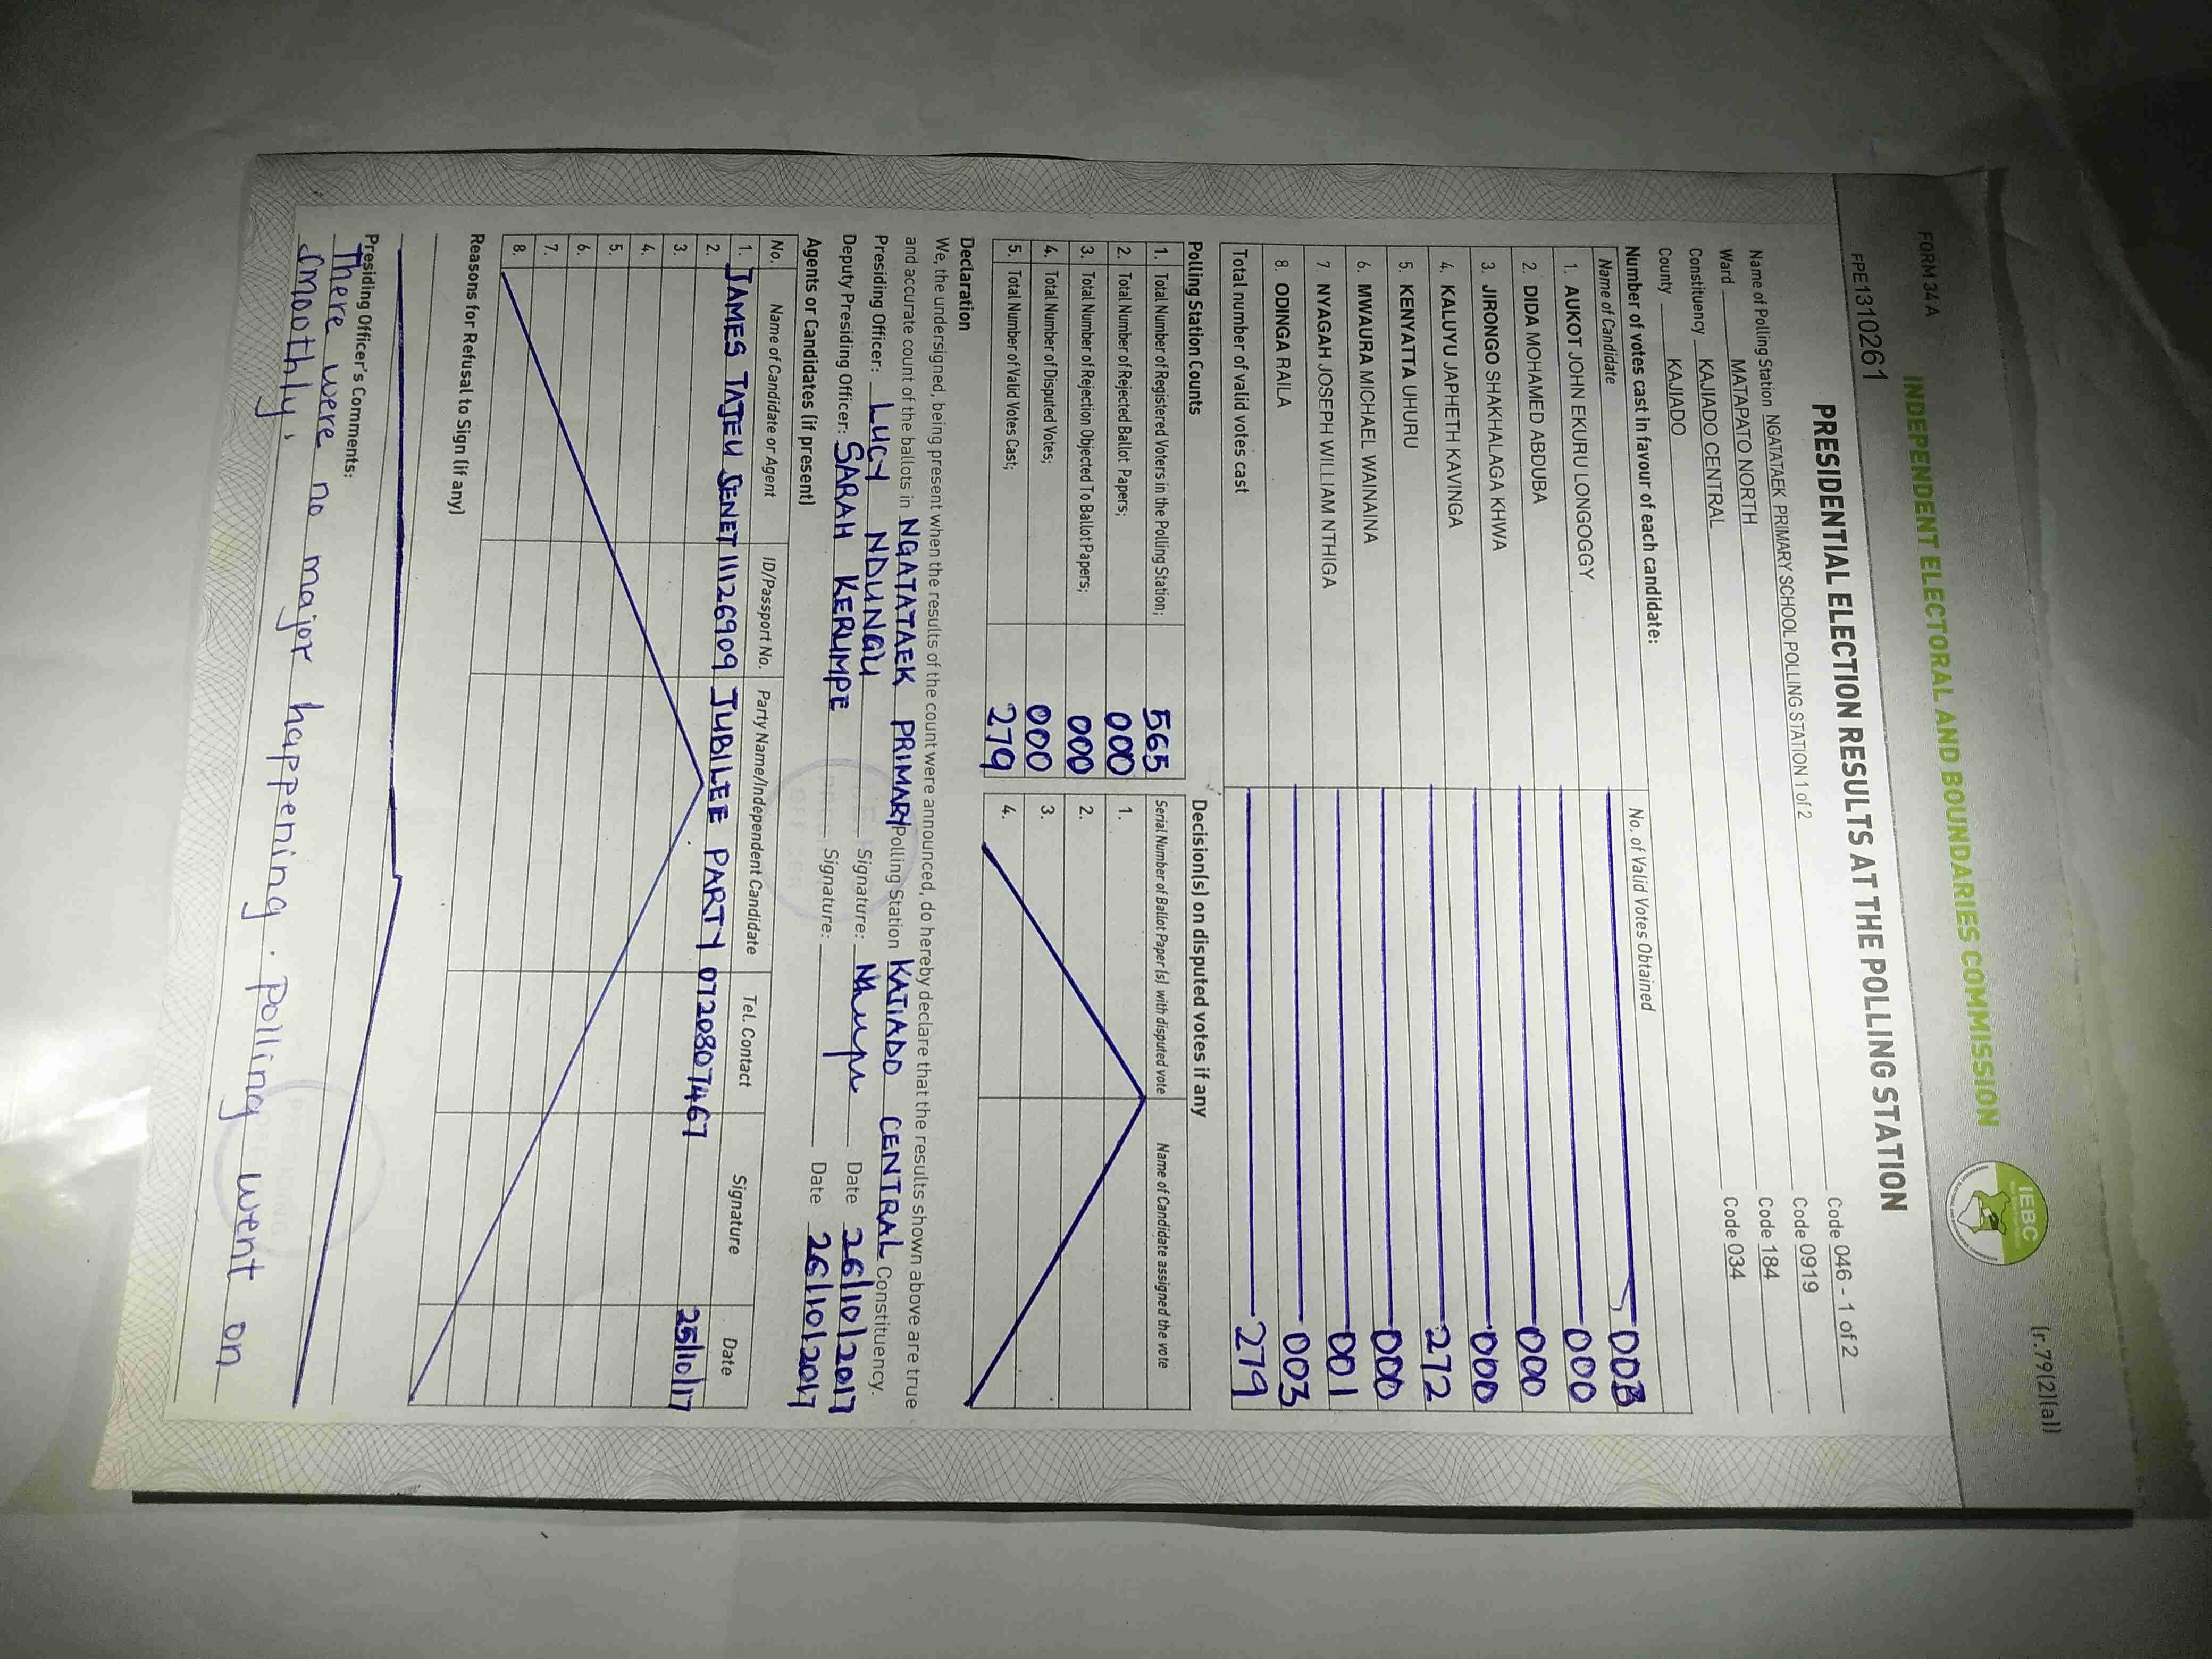 FORM 34 A
(r.79(2)(a))
INDEPENDENT ELECTORAL AND BOUNDARIES COMMISSION
IEBC
FPE1310261
PRESIDENTIAL ELECTION RESULTS AT THE POLLING STATION
Name of Polling Station NGATATAEK PRIMARY SCHOOL POLLING STATION 1 of 2 Code 046 - 1 of 2
Ward MATAPATO NORTH Code 0919
Constituency KAJIADO CENTRAL Code 184
County KAJIADO Code 034
Number of votes cast in favour of each candidate:
Name of Candidate No. of Valid Votes Obtained
1. AUKOT JOHN EKURU LONGOGGY 003
2. DIDA MOHAMED ABDUBA 000
3. JIRONGO SHAKHALAGA KHWA 000
4. KALUYU JAPHETH KAVINGA 000
5. KENYATTA UHURU 272
6. MWAURA MICHAEL WAINAINA 000
7 NYAGAH JOSEPH WILLIAM NTHIGA 001
8. ODINGA RAILA 003
Total number of valid votes cast 279
Polling Station Counts
1. Total Number of Registered Voters in the Polling Station; 565
2. Total Number of Rejected Ballot Papers; 000
3. Total Number of Rejection Objected To Ballot Papers; 000
4. Total Number of Disputed Votes; 000
5. Total Number of Valid Votes Cast; 279
Decision(s) on disputed votes if any
Serial Number of Ballot Paper (s) with disputed vote Name of Candidate assigned the vote
1.
2.
3.
4.
Declaration
We, the undersigned, being present when the results of the count were announced, do hereby declare that the results shown above are true
and accurate count of the ballots in NGATATAEK PRIMARY Polling Station KAJIADO CENTRAL Constituency.
Presiding Officer: LUCY NDUNGU Signature: Date 26/10/2017
Deputy Presiding Officer: SARAH KERUMPE Signature: Date 26/10/2017
Agents or Candidates (if present)
No. Name of Candidate or Agent ID/Passport No. Party Name/Independent Candidate Tel. Contact Signature Date
1. JAMES TAJEU SENET 11126909 JUBILEE PARTY 0720807467 25/10/17
2.
3.
4.
5.
6.
7.
8.
Reasons for Refusal to Sign (if any)
Presiding Officer's Comments:
There were no major happening. Polling went on
smoothly.